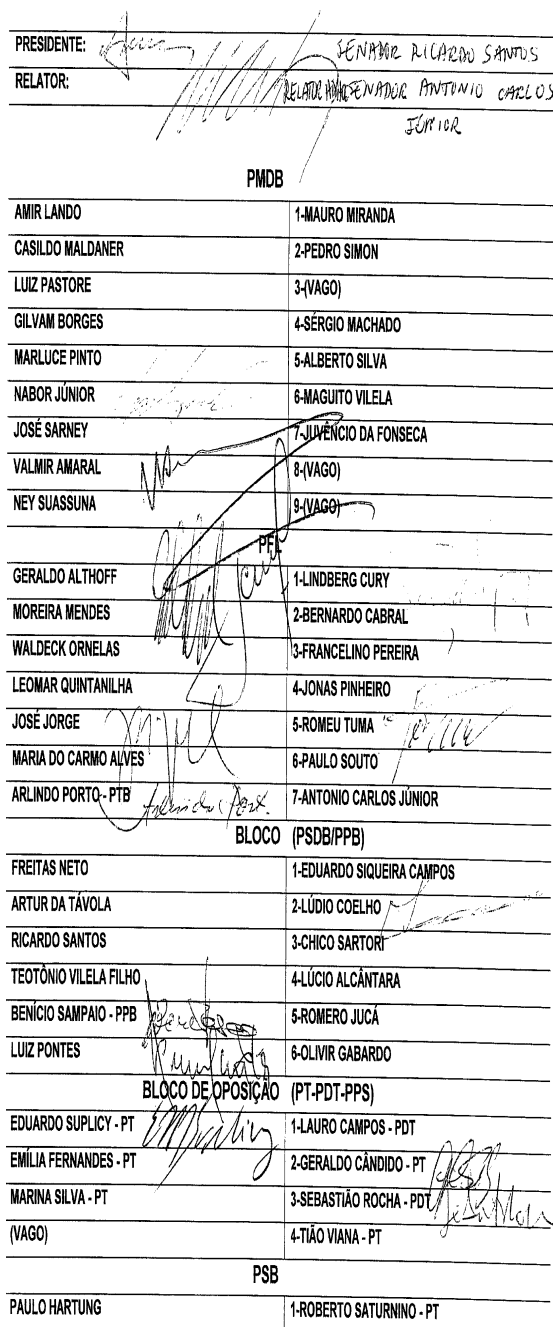 PRESIDENTE: SENADOR RICARDO SANTOS
RELATOR: SENADOR ANTONIO CARLOS
JÚNIOR
PMDB
AMIR LANDO 1-MAURO MIRANDA
CASILDO MALDANER 2-PEDRO SIMON
LUIZ PASTORE 3-(VAGO)
GILVAM BORGES 4-SÉRGIO MACHADO
MARLUCE PINTO 5-ALBERTO SILVA
NABOR JÚNIOR 6-MAGUITO VILELA
JOSÉ SARNEY 7-JUVÊNCIO DA FONSECA
VALMIR AMARAL 8-(VAGO)
NEY SUASSUNA 9-(VAGO)
PFL
GERALDO ALTHOFF 1-LINDBERG CURY
MOREIRA MENDES 2-BERNARDO CABRAL
WALDECK ORNELAS 3-FRANCELINO PEREIRA
LEOMAR QUINTANILHA 4-JONAS PINHEIRO
JOSÉ JORGE 5-ROMEU TUMA
MARIA DO CARMO ALVES 6-PAULO SOUTO
ARLINDO PORTO- PTB 7-ANTONIO CARLOS JÚNIOR
BLOCO (PSDB/PPB)
FREITAS NETO 1-EDUARDO SIQUEIRA CAMPOS
ARTUR DA TÁVOLA 2-LÚDIO COELHO
RICARDO SANTOS 3-CHICO SARTORI
TEOTÔNIO VILELA FILHO 4-LÚCIO ALCÂNTARA
BENÍCIO SAMPAIO - PPB 5-ROMERO JUCÁ
LUIZ PONTES 6-OLIVIR GABARDO
BLOCO DE OPOSIÇÃO (PT-PDT-PPS)
EDUARDO SUPLICY - PT 1-LAURO CAMPOS - PDT
EMÍLIA FERNANDES - PT 2-GERALDO CÂNDIDO - PT
MARINA SILVA - PT 3-SEBASTIÃO ROCHA - PDT
(VAGO) 4-TIÃO VIANA - PT
PSB
PAULO HARTUNG 1-ROBERTO SATURNINO - PT